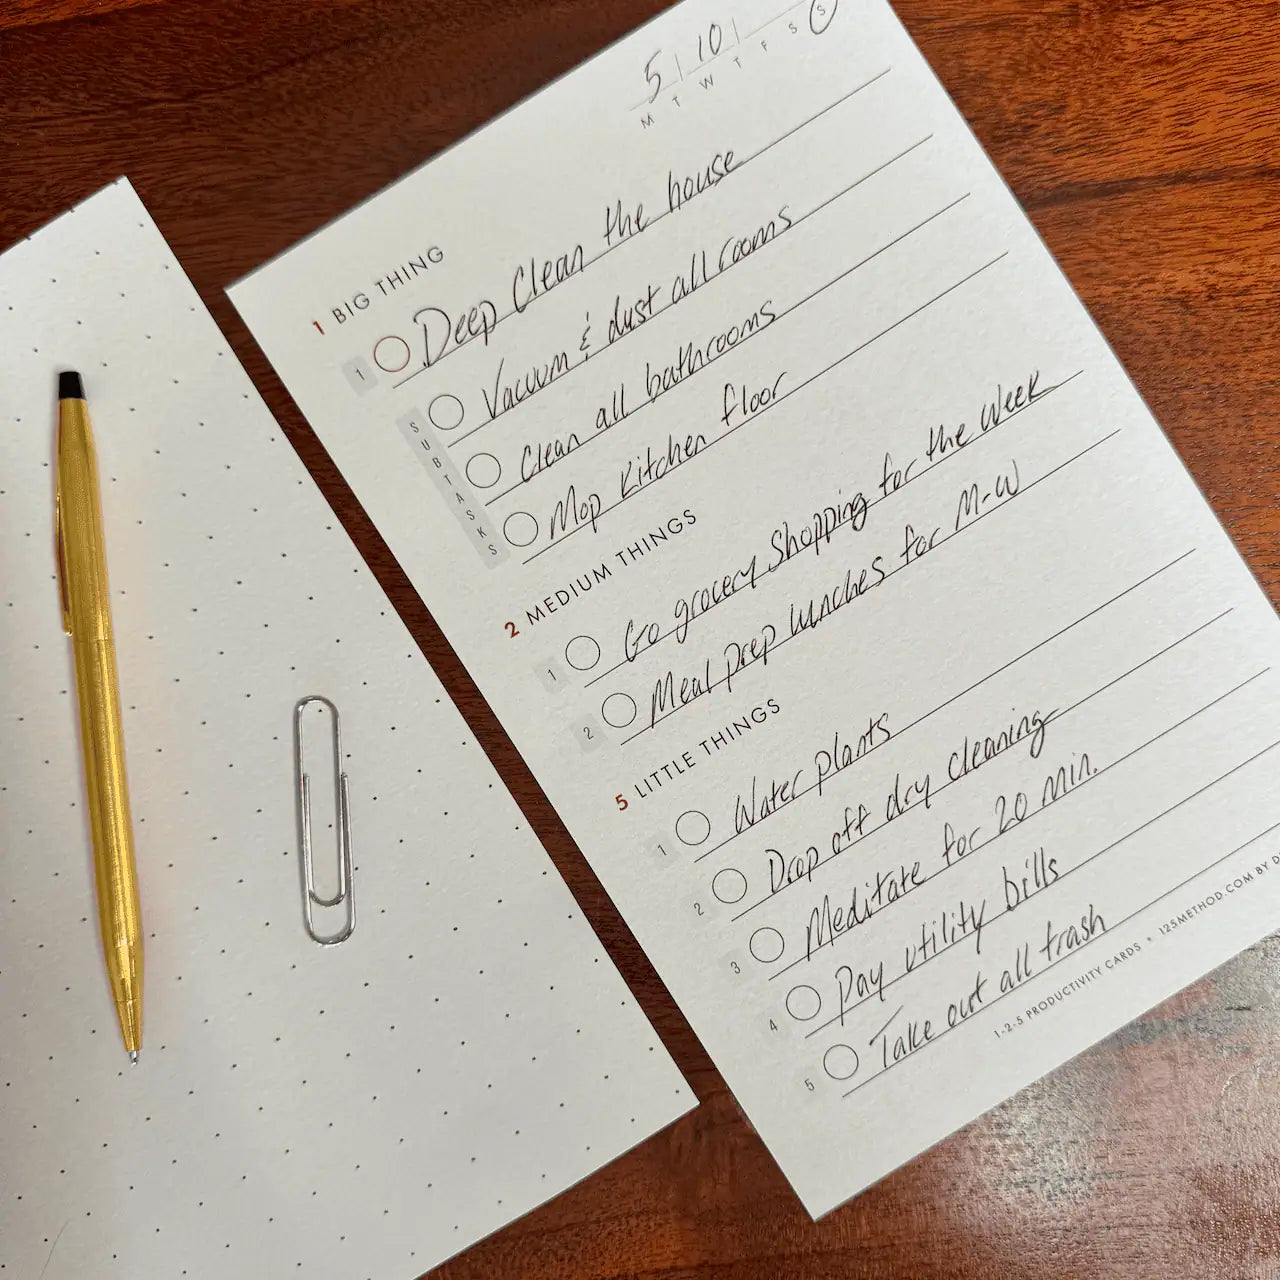 5 | 10 |
M T W T F S S
1 BIG THING
1 Deep Clean the house
SUBTASKS
Vacuum & dust all rooms
Clean all bathrooms
Mop Kitchen floor
2 MEDIUM THINGS
1 Go grocery Shopping for the Week
2 Meal prep lunches for M-W
5 LITTLE THINGS
1 Water plants
2 Drop off dry cleaning
3 Meditate for 20 Min.
4 Pay utility bills
5 Take out all trash
1-2-5 PRODUCTIVITY CARDS • 125METHOD.COM BY